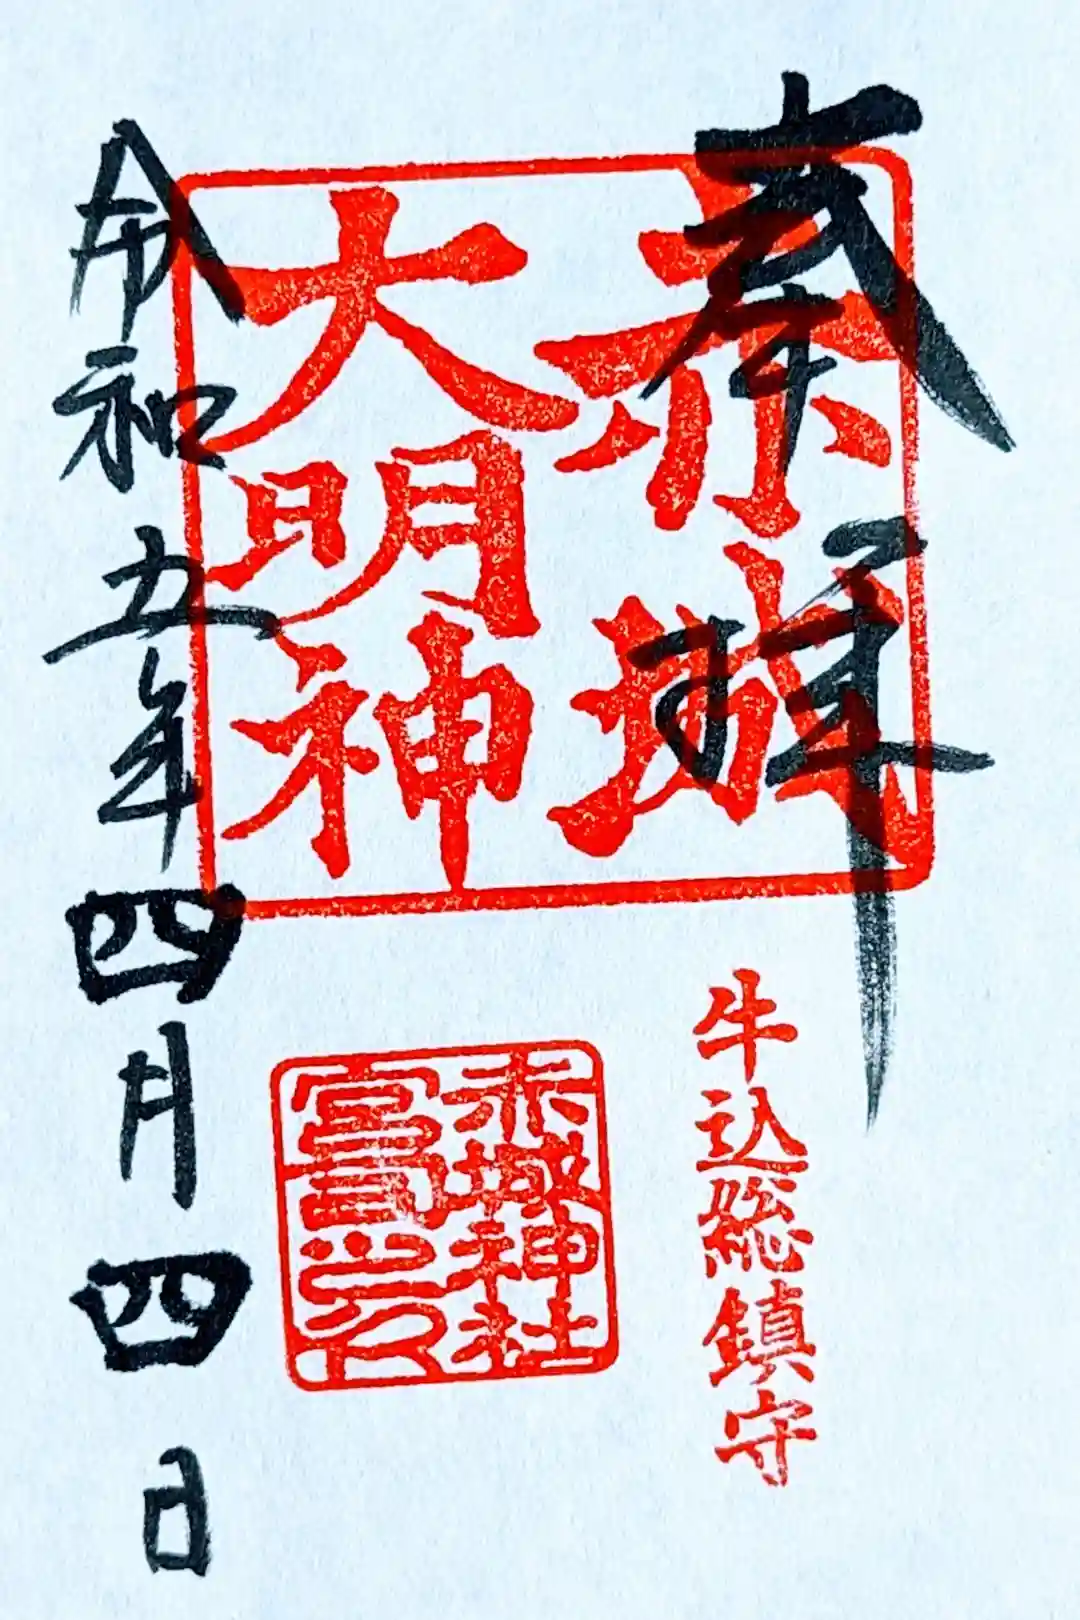 奉拝
赤城
大明神
牛込総鎮守
赤城神社
宮司之印
令和五年四月四日